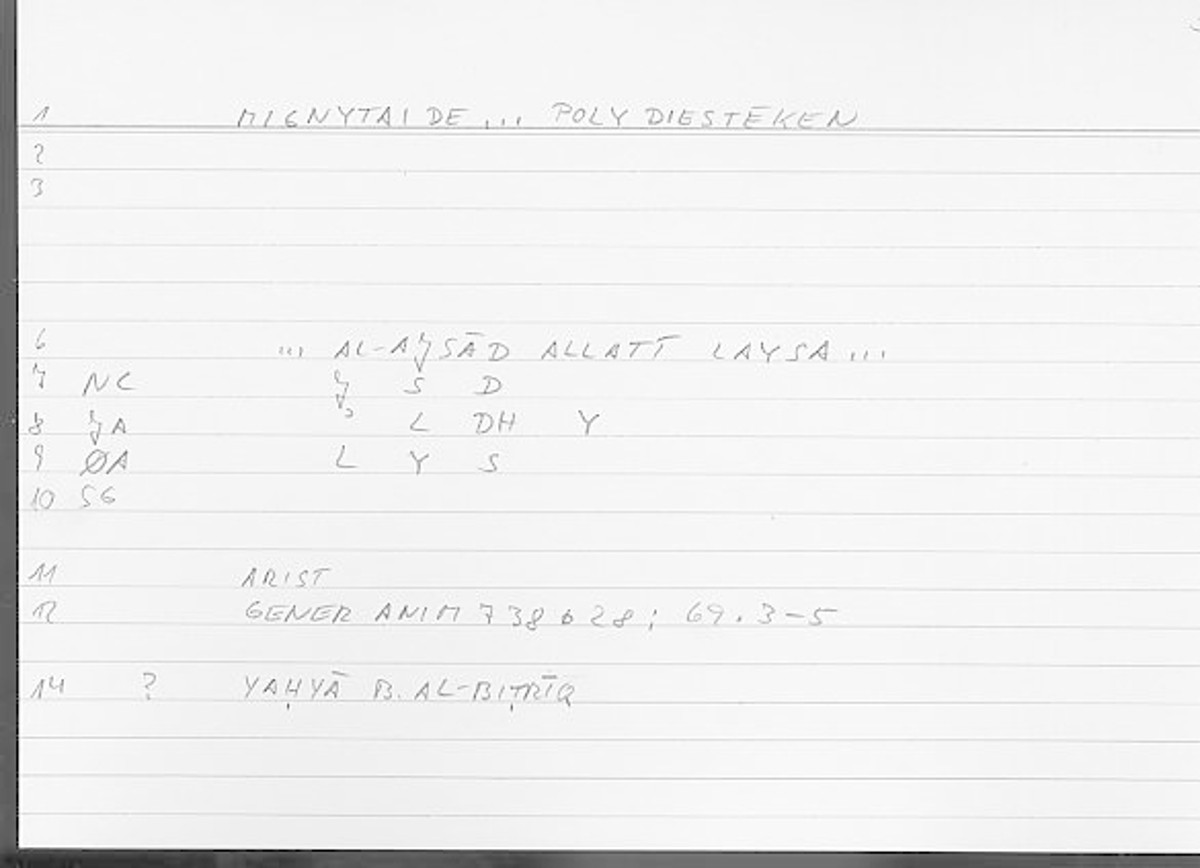 1 MIGNYTAI DE ... POLY DIESTĒKEN
2
3
6 ... AL-AǦSĀD ALLATĪ LAYSA ...
7 NC Ǧ S D
8 ǦA L DH Y
9 ØA L Y S
10 SG
11 ARIST
12 GENER ANIM 738 b 28; 69.3-5
14 ? YAḤYĀ B. AL-BIṬRĪQ